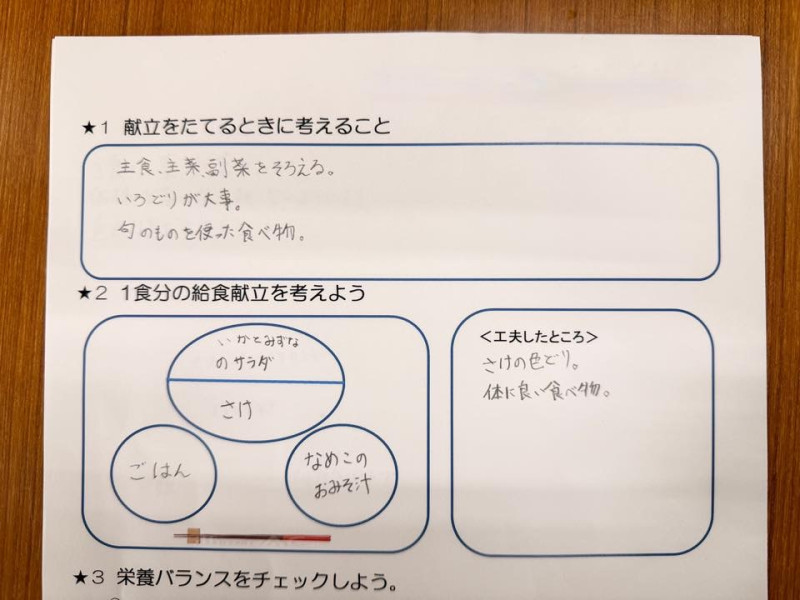 ★1 献立をたてるときに考えること
主食、主菜、副菜をそろえる。
いろどりが大事。
旬のものを使った食べ物。
★2 1食分の給食献立を考えよう
いかとみずな
のサラダ
さけ
ごはん
なめこの
おみそ汁
<工夫したところ>
さけの色どり。
体に良い食べ物。
★3 栄養バランスをチェックしよう。